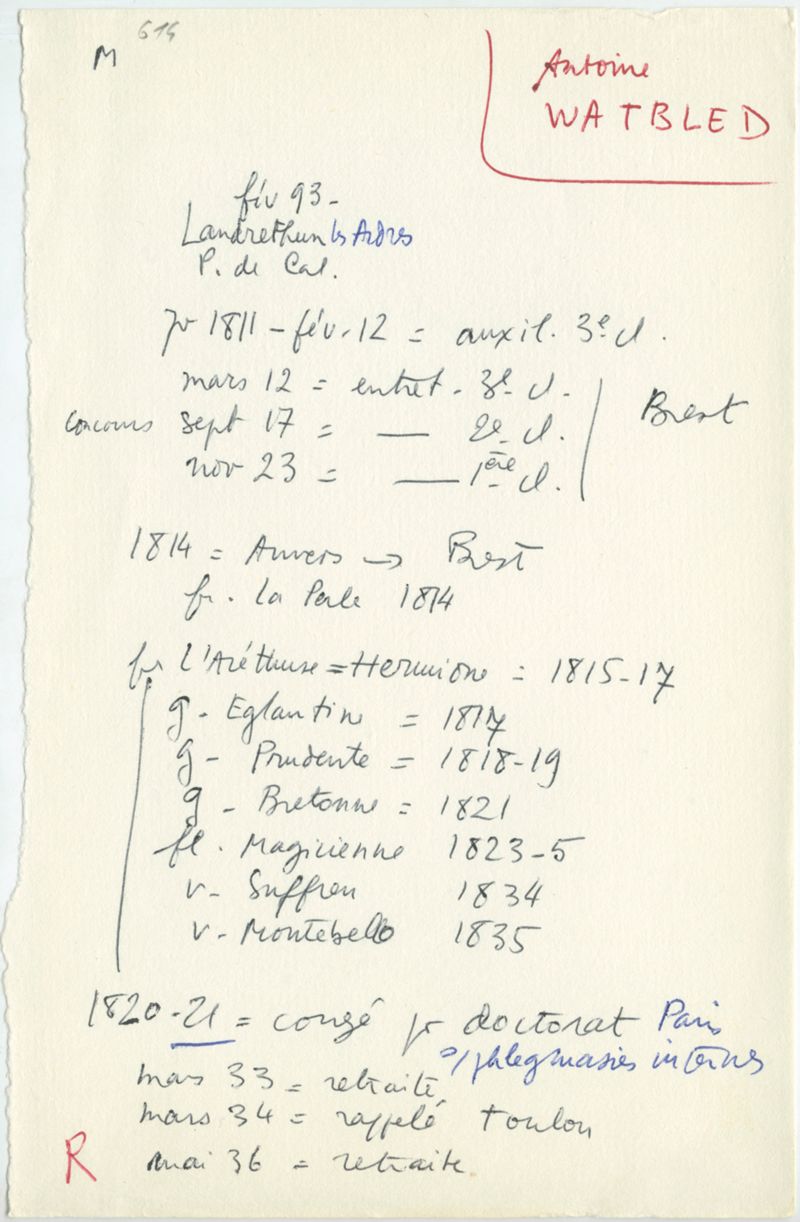 M 614
Antoine
WATBLED
fév 93-
Landrethun les Ardres
P. de Cal.
jr 1811 - fév. 12 = auxil. 3e cl.
mars 12 = entret. 3e cl.
Brest
concours sept 17 = — 2e cl.
nov 23 = — 1ère cl.
1814 = Anvers → Brest
fr. La Perle 1814
fr L'Aréthuse = Hermione = 1815-17
g - Eglantine = 1817
g - Prudente = 1818-19
g - Bretonne = 1821
fl. Magicienne 1823-5
v - Suffren 1834
v - Montebello 1835
1820-21 = congé pr doctorat Paris
s/ phlegmasies internes
mars 33 = retraite
mars 34 = rappelé Toulon
R mai 36 = retraite